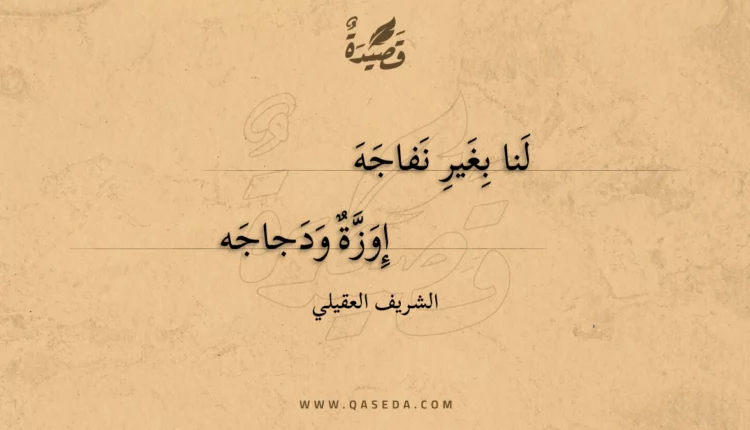 قَصِيدَةٌ
لَنا بِغَيرِ نَفاجَهَ
إِوَزَّةٌ وَدَجاجَه
الشريف العقيلي
WWW.QASEDA.COM